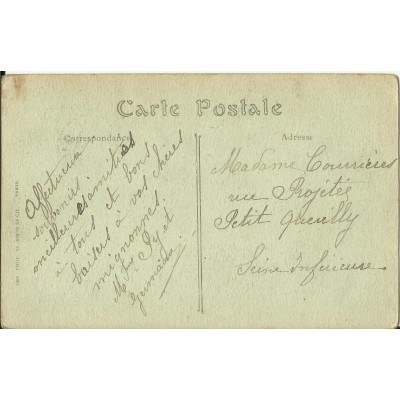 Carte Postale
Correspondance
Adresse
Affectueux
souvenirs
meilleures amitiés
à tous et bons
baisers à vos chères
mignonnes.
Germaine
Madame Courrières
rue Projetée
Petit Quevilly
Seine Inférieure